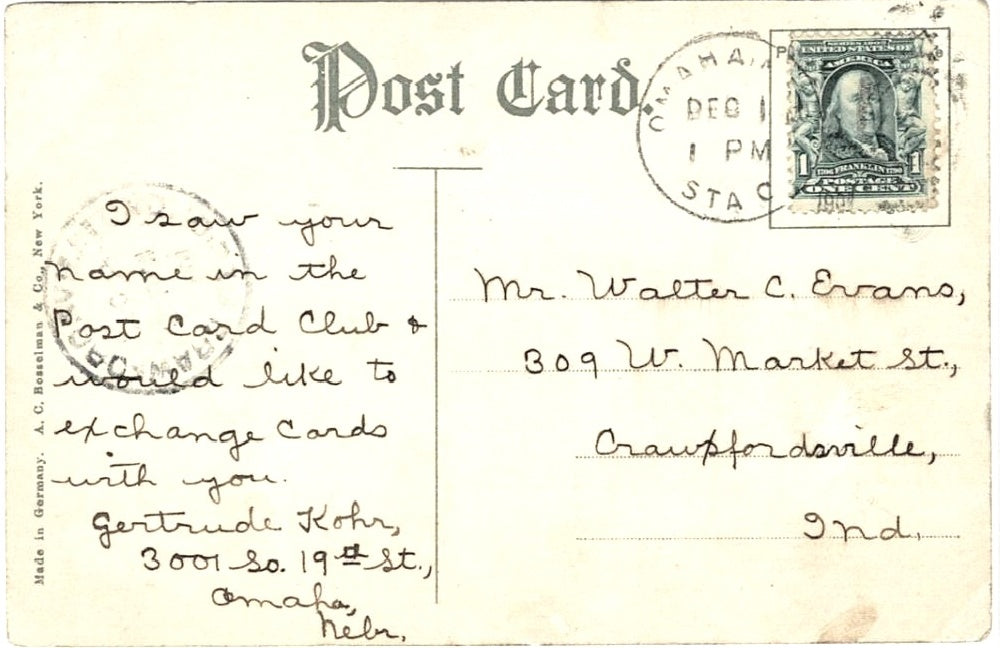 Post Card.
OMAHA
DEC 1
1 PM
STA C
1907
SERIES 1902
UNITED STATES OF
AMERICA
1 1
FRANKLIN
POSTAGE
ONE CENT
I saw your
name in the
Post Card Club &
would like to
exchange Cards
with you.
Gertrude Kohr,
3001 So. 19th St.,
Omaha,
Nebr.
Mr. Walter C. Evans,
309 W. Market St.,
Crawfordsville,
Ind.
Made in Germany. A. C. Bosselman & Co., New York.